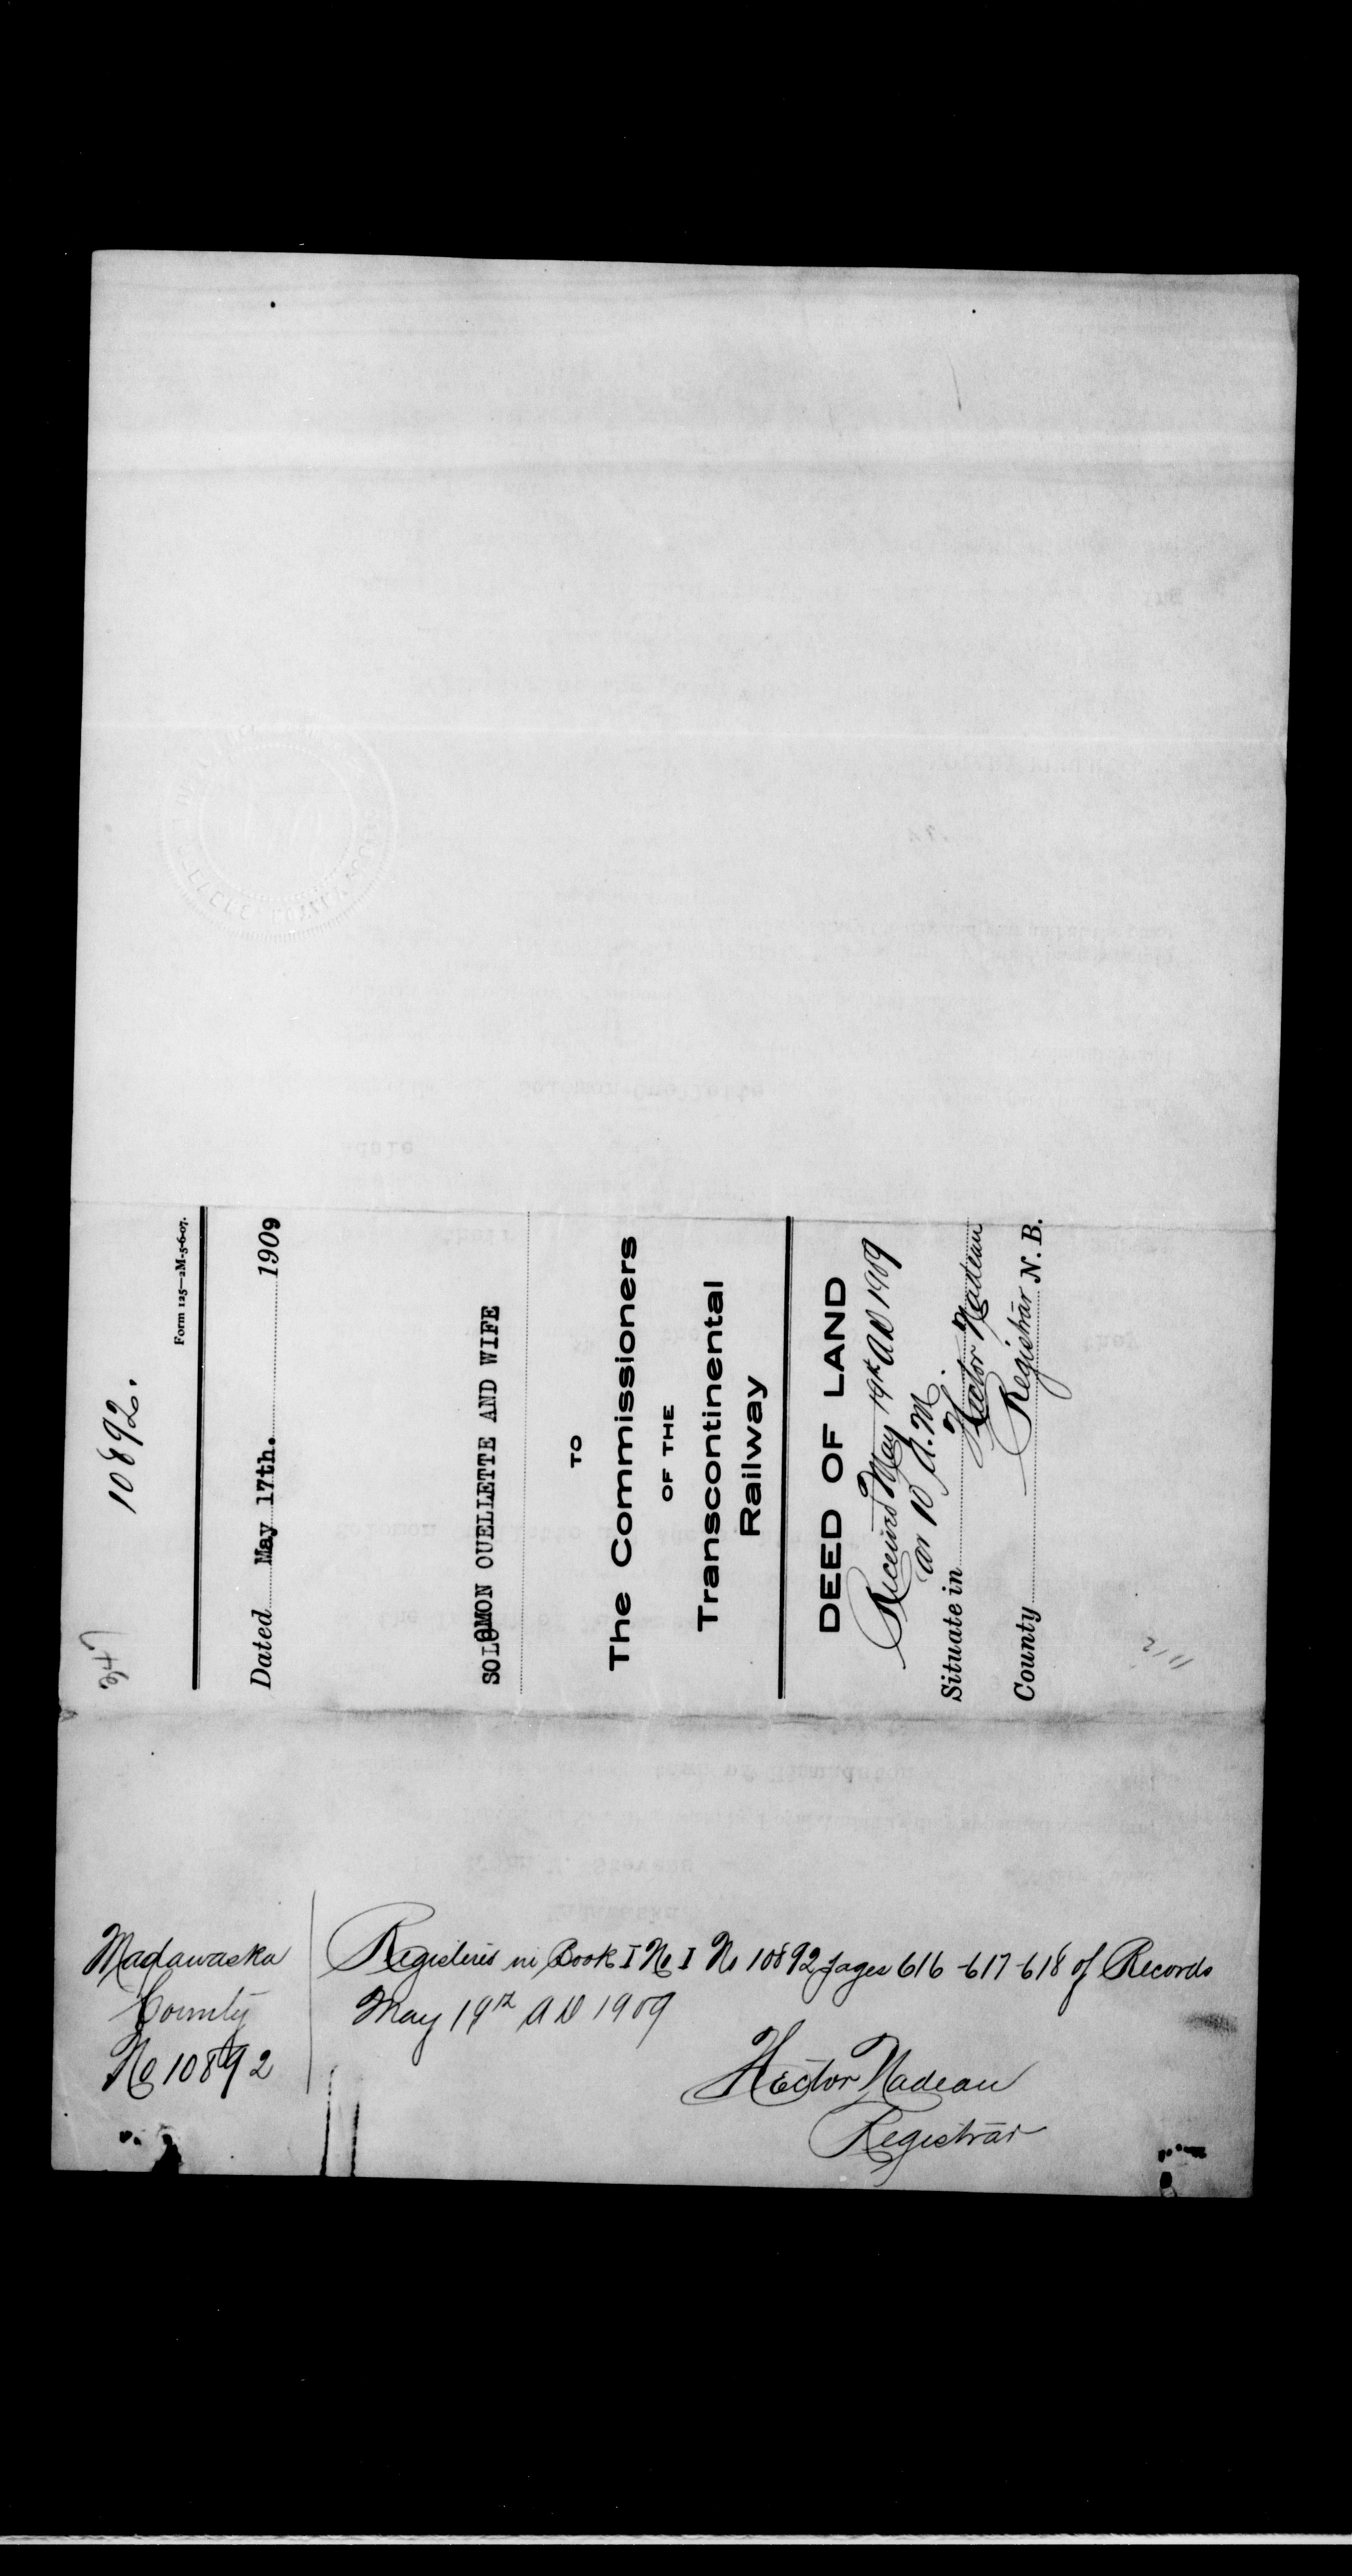 10892.
Form 125—2M-5-6-07.
Dated May 17th. 1909
SOLOMON OUELLETTE AND WIFE
TO
The Commissioners
OF THE
Transcontinental
Railway
DEED OF LAND
Received May 19th AD 1909
at 10 A.M.
Situate in Hector Nadeau
Registrar
County N. B.
Madawaska
County
No 10892
Registered in Book I No I No 10892 pages 616-617-618 of Records
May 19th AD 1909
Hector Nadeau
Registrar